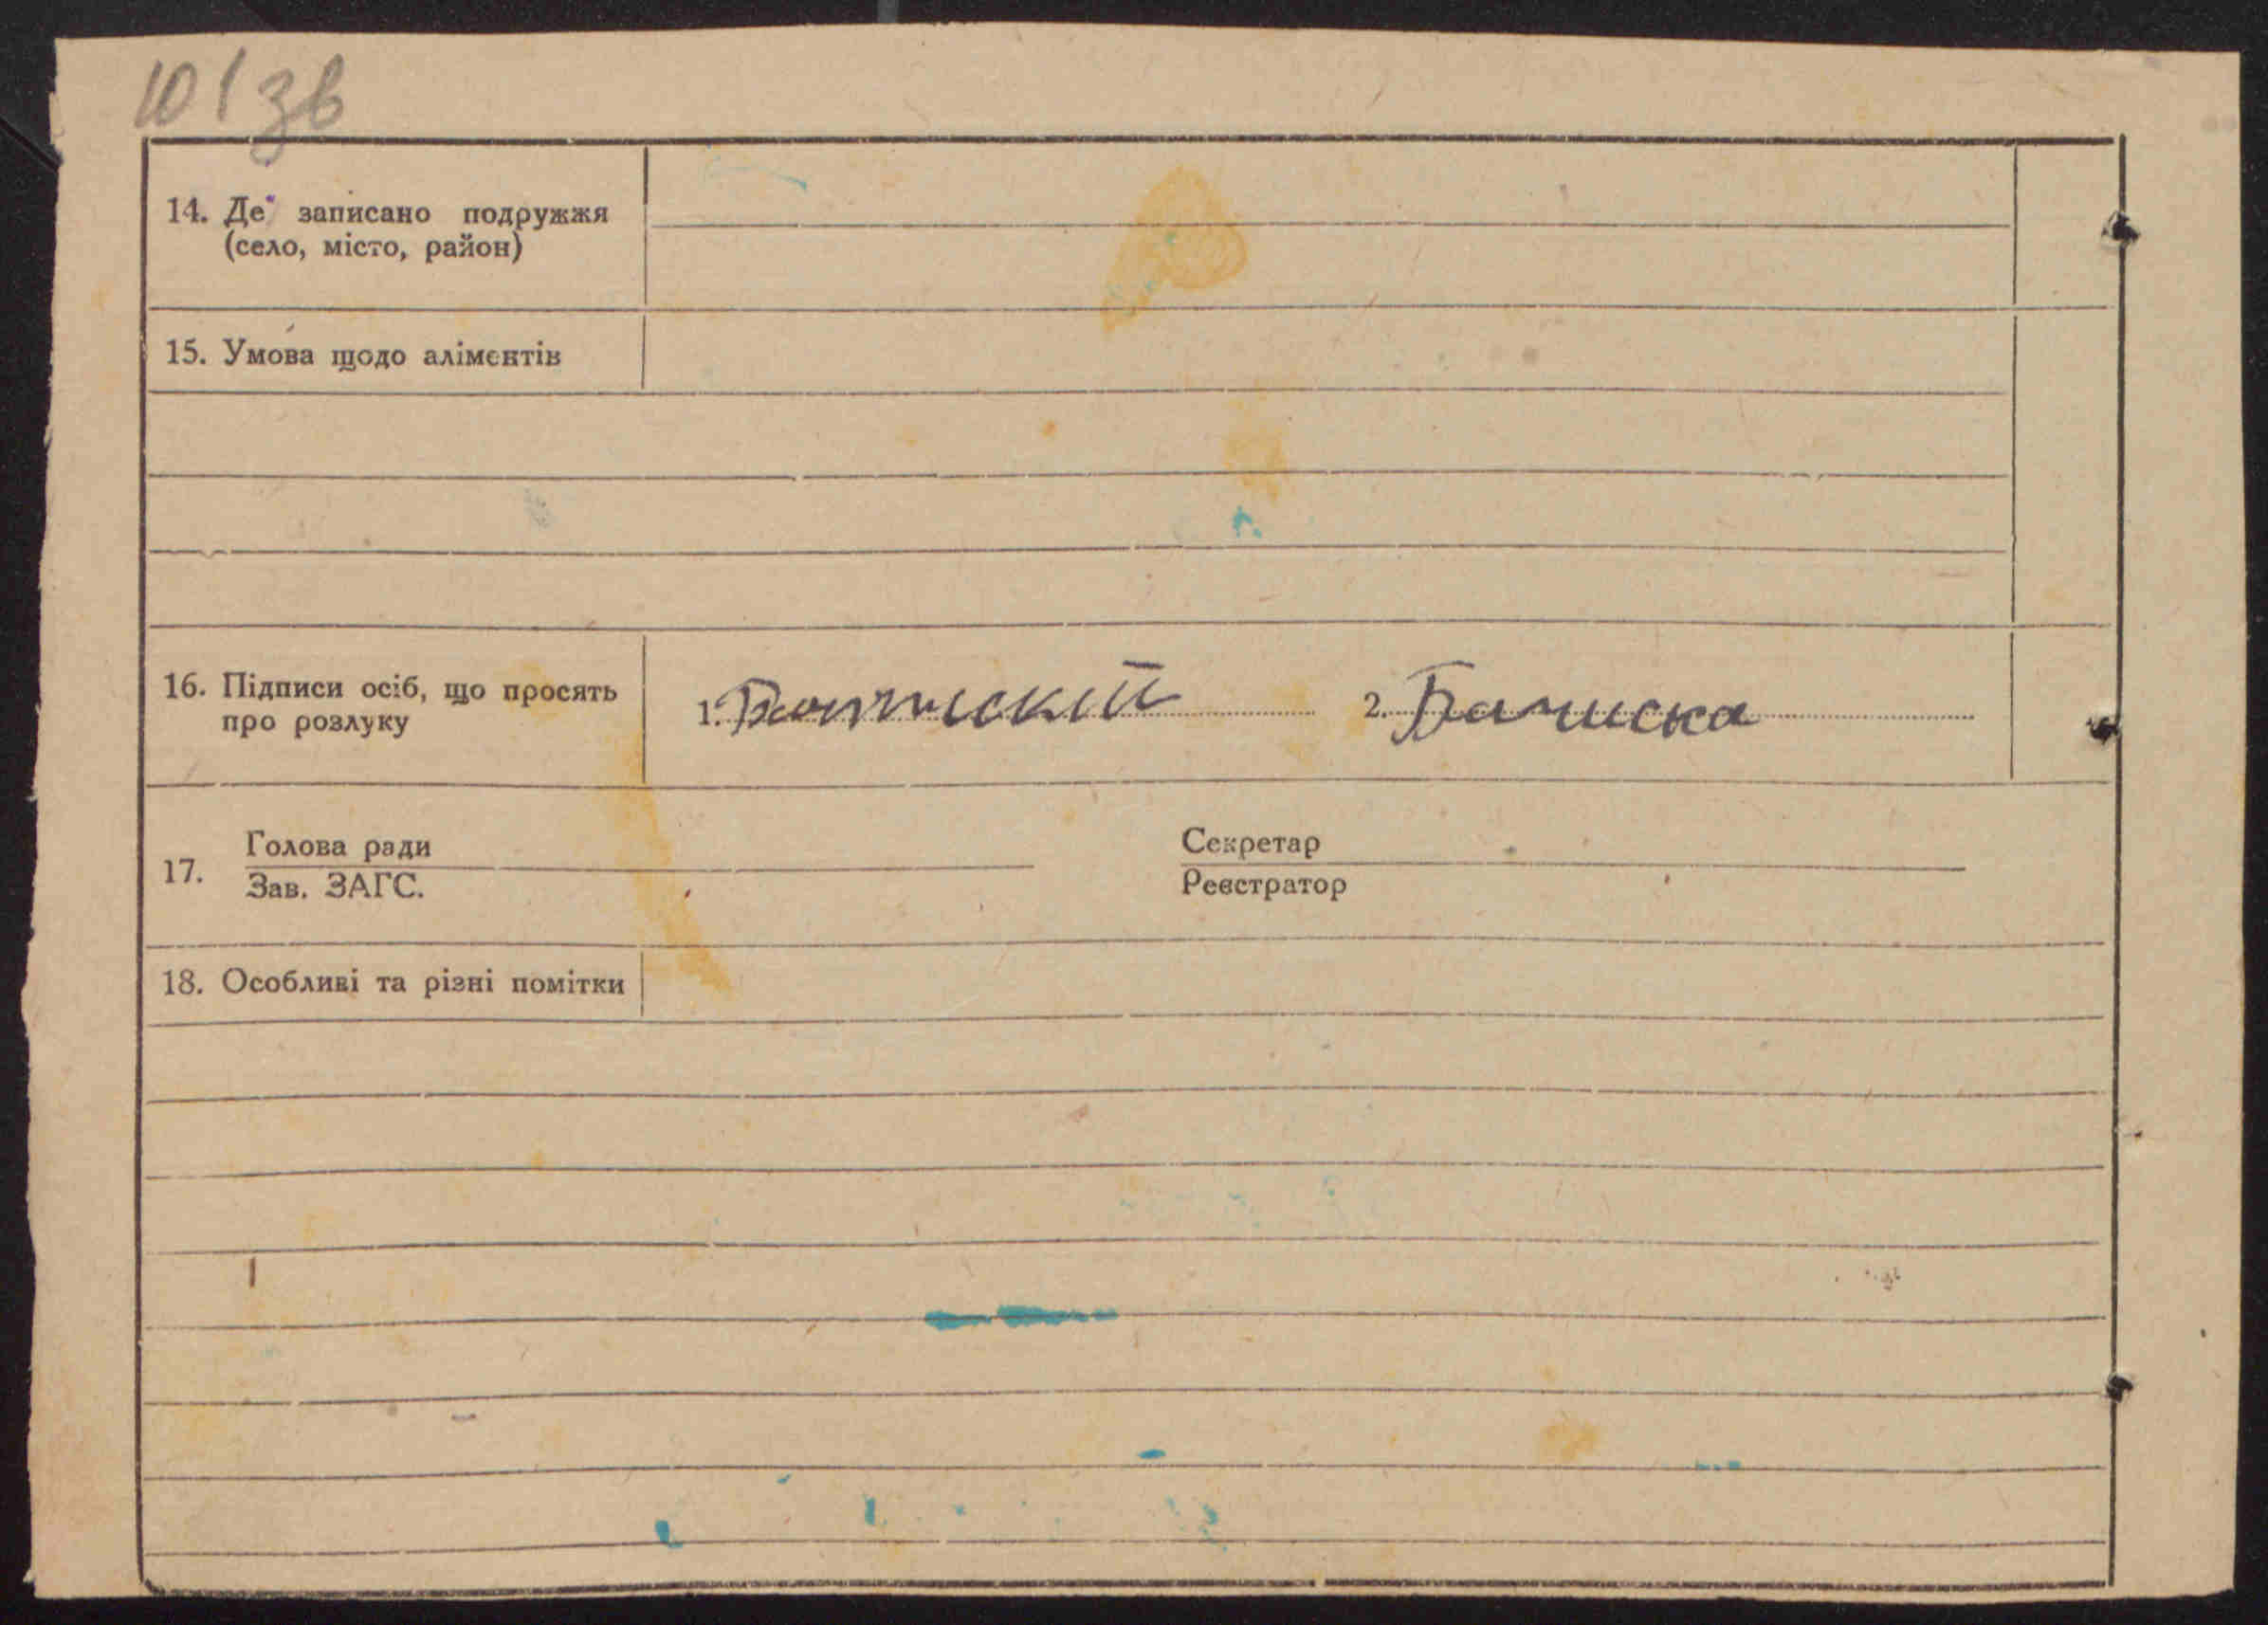 101 зв
14. Де записано подружжя
(село, місто, район)
15. Умова щодо аліментів
16. Підписи осіб, що просять
про розлуку
1. 2. Бачиска
17. Голова ради Секретар
Зав. ЗАГС. Реєстратор
18. Особливі та різні помітки